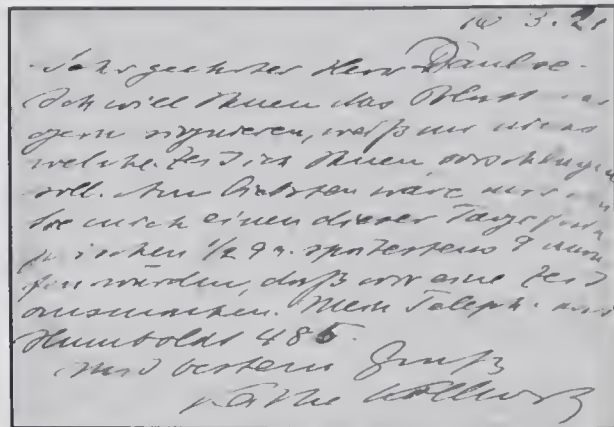 3. 21
Sehr geehrter Herr Däubé.
Ich will Ihnen das Blatt
gern signieren, weiß nur nicht
welche Zeit ich Ihnen vorschlagen
soll. Am liebsten wäre mir
Sie mich einen dieser Tage früh
zwischen 1/2 9 u. spätestens 9 anru
fen würden, daß wir eine Zeit
ausmachen. Mein Teleph.
Humboldt 485.
mit bestem Gruß
Käthe Kollwitz